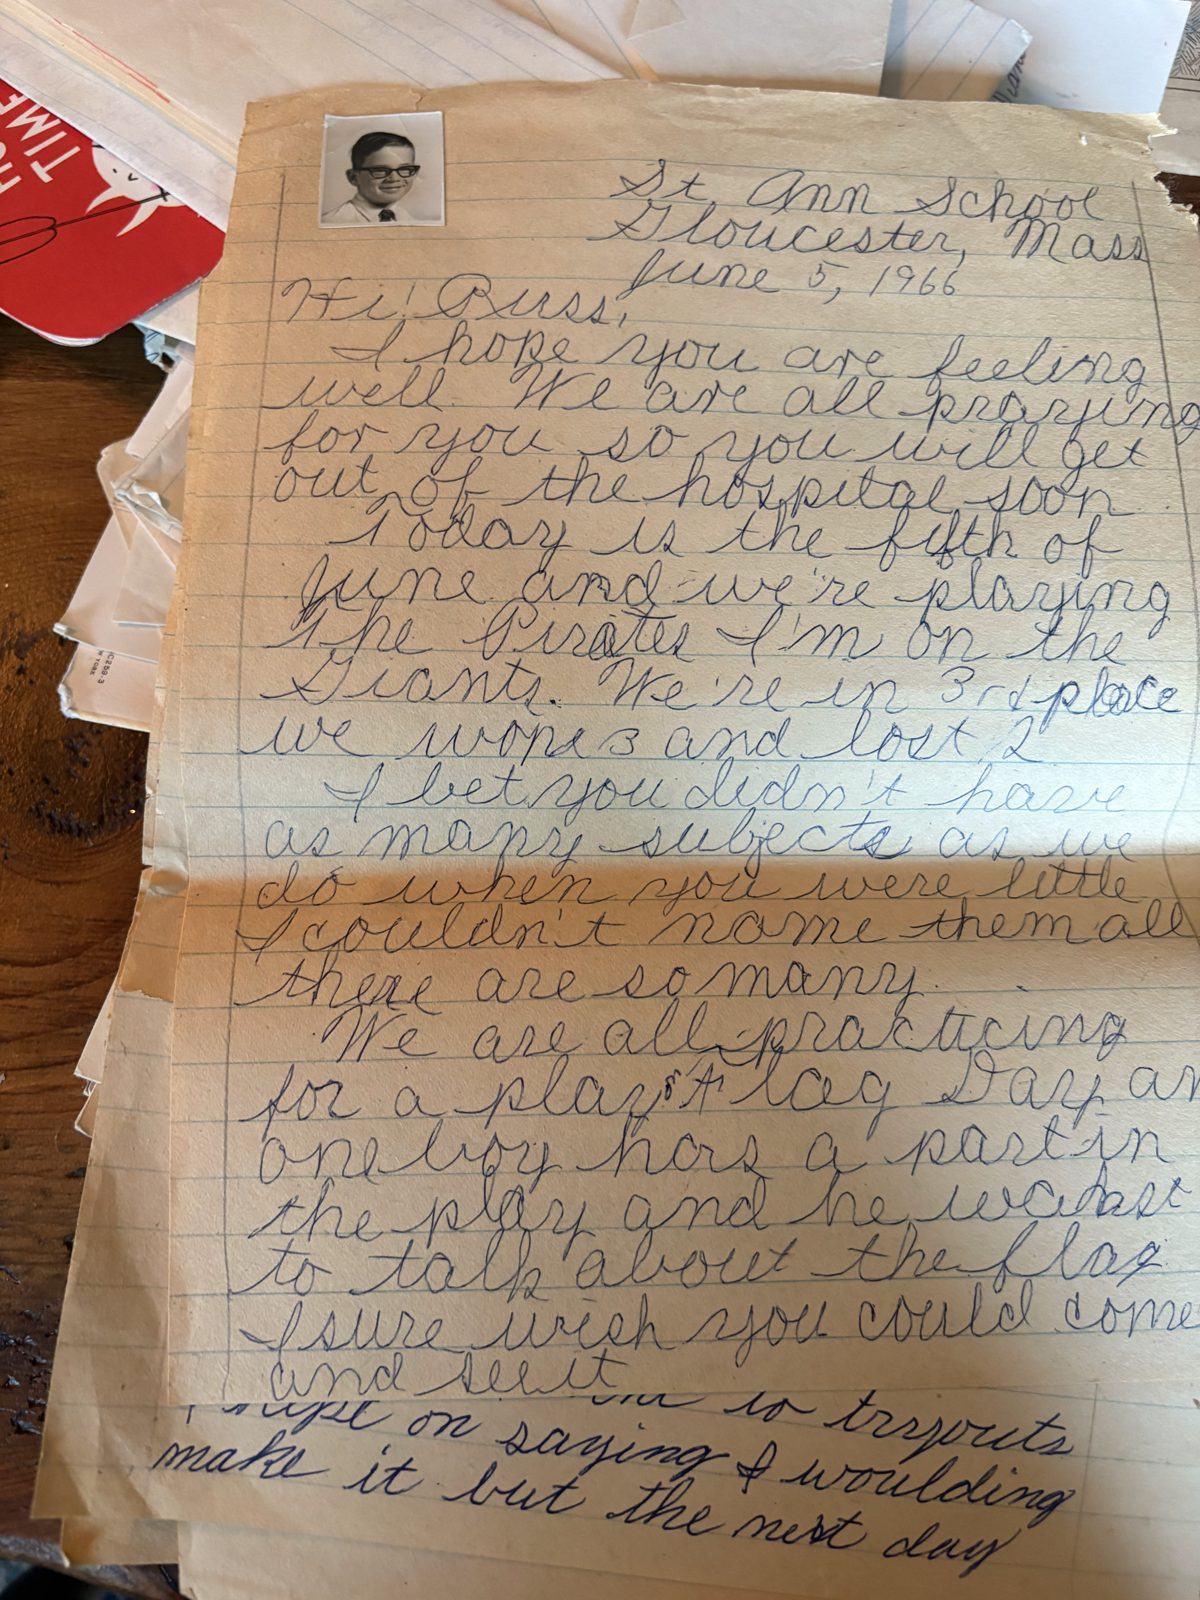 St Ann School
Gloucester, Mass
June 5, 1966
Hi! Russ,
I hope you are feeling
well. We are all praying
for you so you will get
out of the hospital soon
Today is the fifth of
June and we're playing
The Pirates I'm on the
Giants. We're in 3rd place
we wone 3 and lost 2
I bet you didn't have
as many subjects as we
do when you were little
I couldn't name them all
there are so many.
We are all practicing
for a play Flag Day an
one boy has a part in
the play and he
to talk about the flag
I sure wish you could come
and see it
to tryouts
on saying I woulding
make it but the next day
TIME